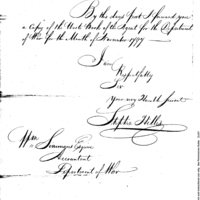 By the days post I forward you
a Copy of the Cash Book of the Agent for the Department
of War for the Month of November 1799
I am
Respectfully
Sir
Your very Humble Servant
Wm Simmons Esquire
Accountant
Department of War